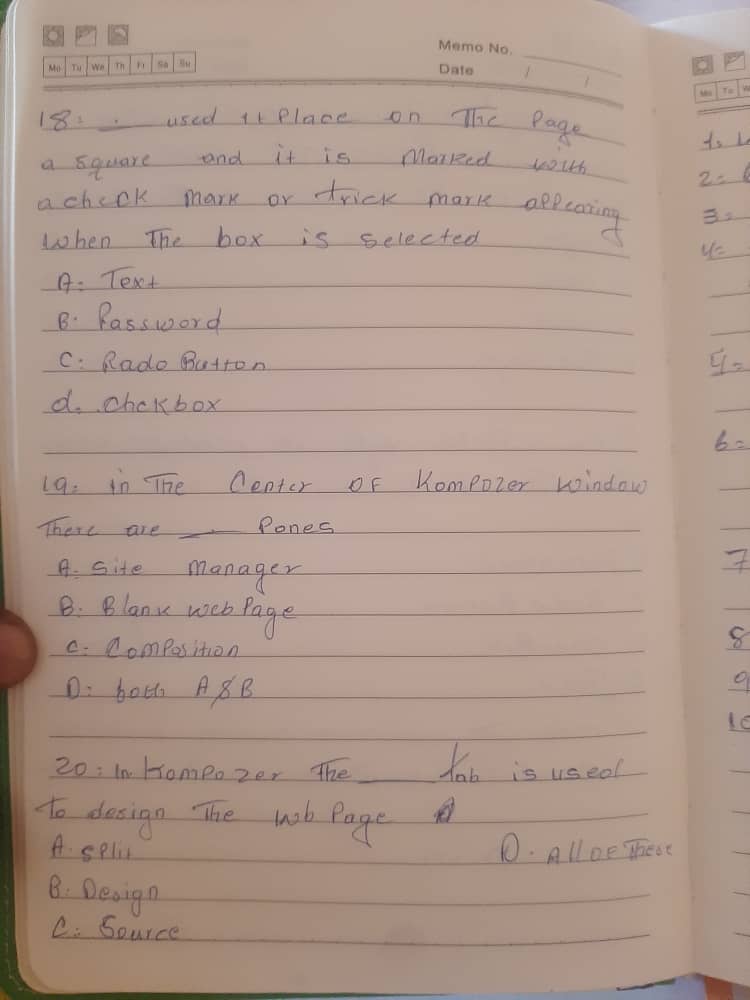 Memo No.
Mo Tu We Th Fr Sa Su
Date / /
18: __ used it Place on The Page
a square and it is Marked with
a check mark or trick mark appearing
when The box is selected
A: Text
B: Password
C: Rado Button
d. chckbox
19: in The Center OF Kompozer window
There are __ Pones
A. Site manager
B: Blank web Page
C: Composition
D: both A & B
20: In Kompozer The ___ tab is used
to design The wb Page
A. split
D. All OF These
B: Design
C: Source
Mo Tu W
1:
2=
3=
4=
5=
6=
7
8
9
10